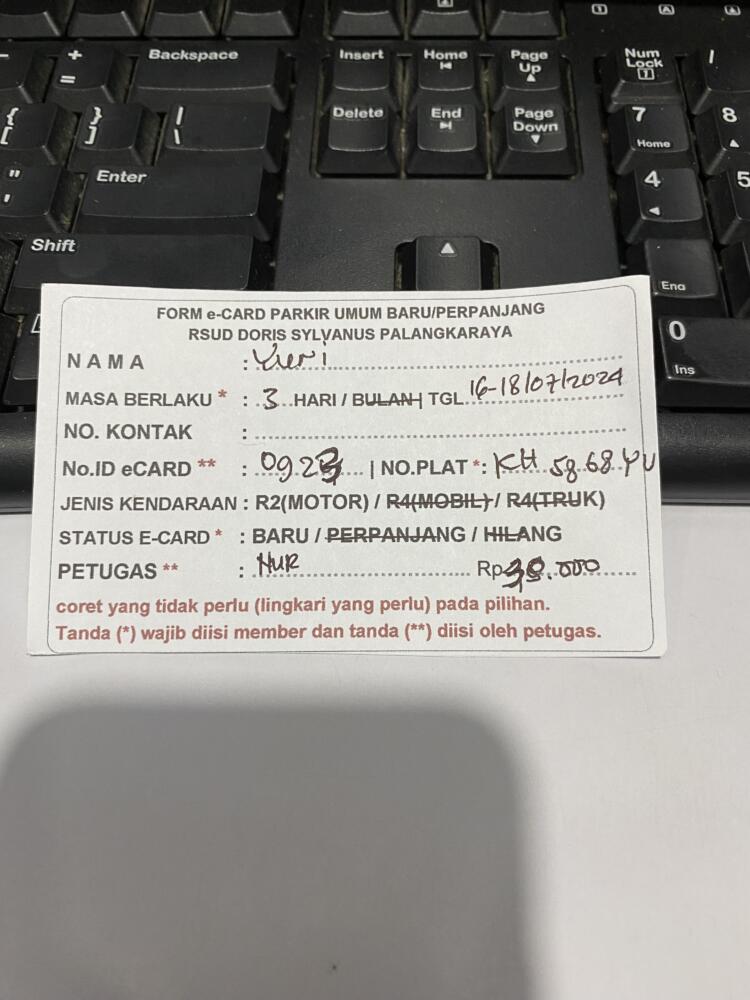 +
=
Backspace
Insert
Home
Page Up
Num Lock
/
{
[
}
]
|
\
Delete
End
Page Down
7
Home
8
"
'
Enter
4
5
Shift
End
0
Ins
FORM e-CARD PARKIR UMUM BARU/PERPANJANG
RSUD DORIS SYLVANUS PALANGKARAYA
NAMA : Yuri
MASA BERLAKU * : 3 HARI / BULAN | TGL 16-18/07/2024
NO. KONTAK :
No.ID eCARD ** : | NO.PLAT *: KH 5868 YU
JENIS KENDARAAN : R2(MOTOR) / R4(MOBIL) / R4(TRUK)
STATUS E-CARD * : BARU / PERPANJANG / HILANG
PETUGAS ** : NUR Rp
coret yang tidak perlu (lingkari yang perlu) pada pilihan.
Tanda (*) wajib diisi member dan tanda (**) diisi oleh petugas.